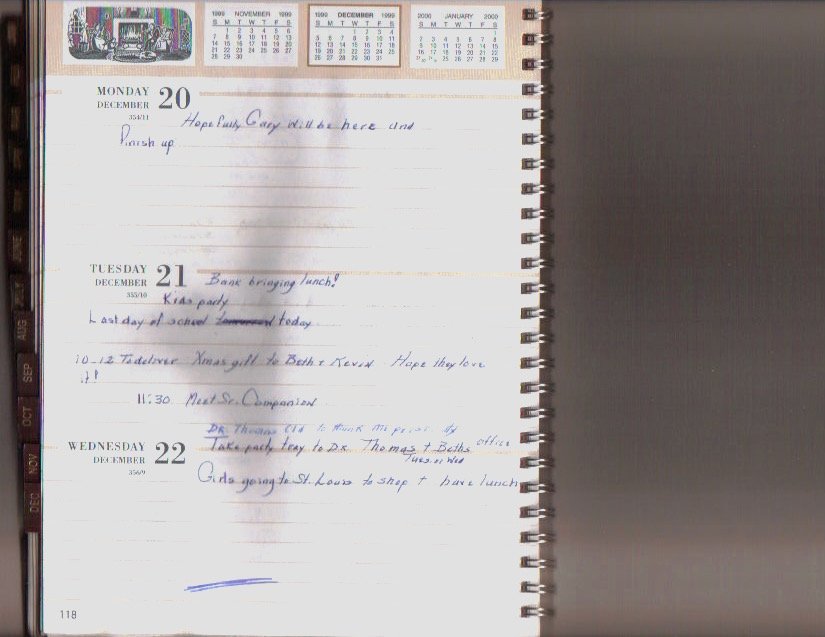 1999 NOVEMBER 1999
S M T W T F S
1 2 3 4 5 6
7 8 9 10 11 12 13
14 15 16 17 18 19 20
21 22 23 24 25 26 27
28 29 30
1999 DECEMBER 1999
S M T W T F S
1 2 3 4
5 6 7 8 9 10 11
12 13 14 15 16 17 18
19 20 21 22 23 24 25
26 27 28 29 30 31
2000 JANUARY 2000
S M T W T F S
1
2 3 4 5 6 7 8
9 10 11 12 13 14 15
16 17 18 19 20 21 22
25 26 27 28 29
MONDAY
DECEMBER 20
354/11
Hopefully Gary will be here and
Finish up
TUESDAY
DECEMBER 21
355/10
Bank bringing lunch!
Kids party
Last day of school tomorrow today
10-12 To deliver Xmas gift to Beth + Kevin Hope they love
it!
11:30 Meet Sr. Companion
DR. Thomas Cld to thank me
WEDNESDAY
DECEMBER 22
356/9
Take party tray to Dr. Thomas + Beths office
Tues. or Wed
Girls going to St. Louis to shop + have lunch
118
JUNE
JULY
AUG
SEP
OCT
NOV
DEC